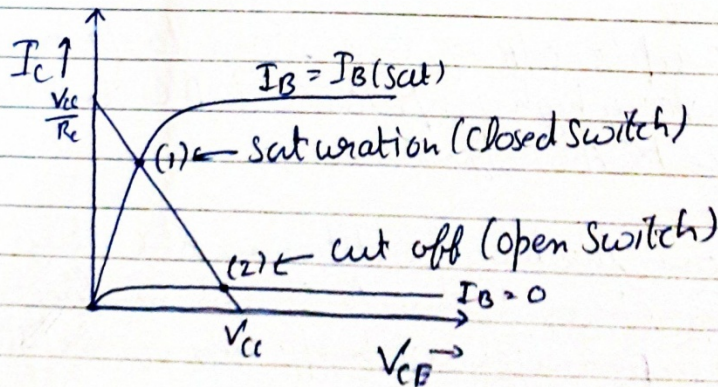 I_C ↑
I_B = I_B(sat)
V_CC
R_C
(1) ← saturation (closed switch)
(2) ← cut off (open switch)
I_B = 0
V_CC
V_CE →